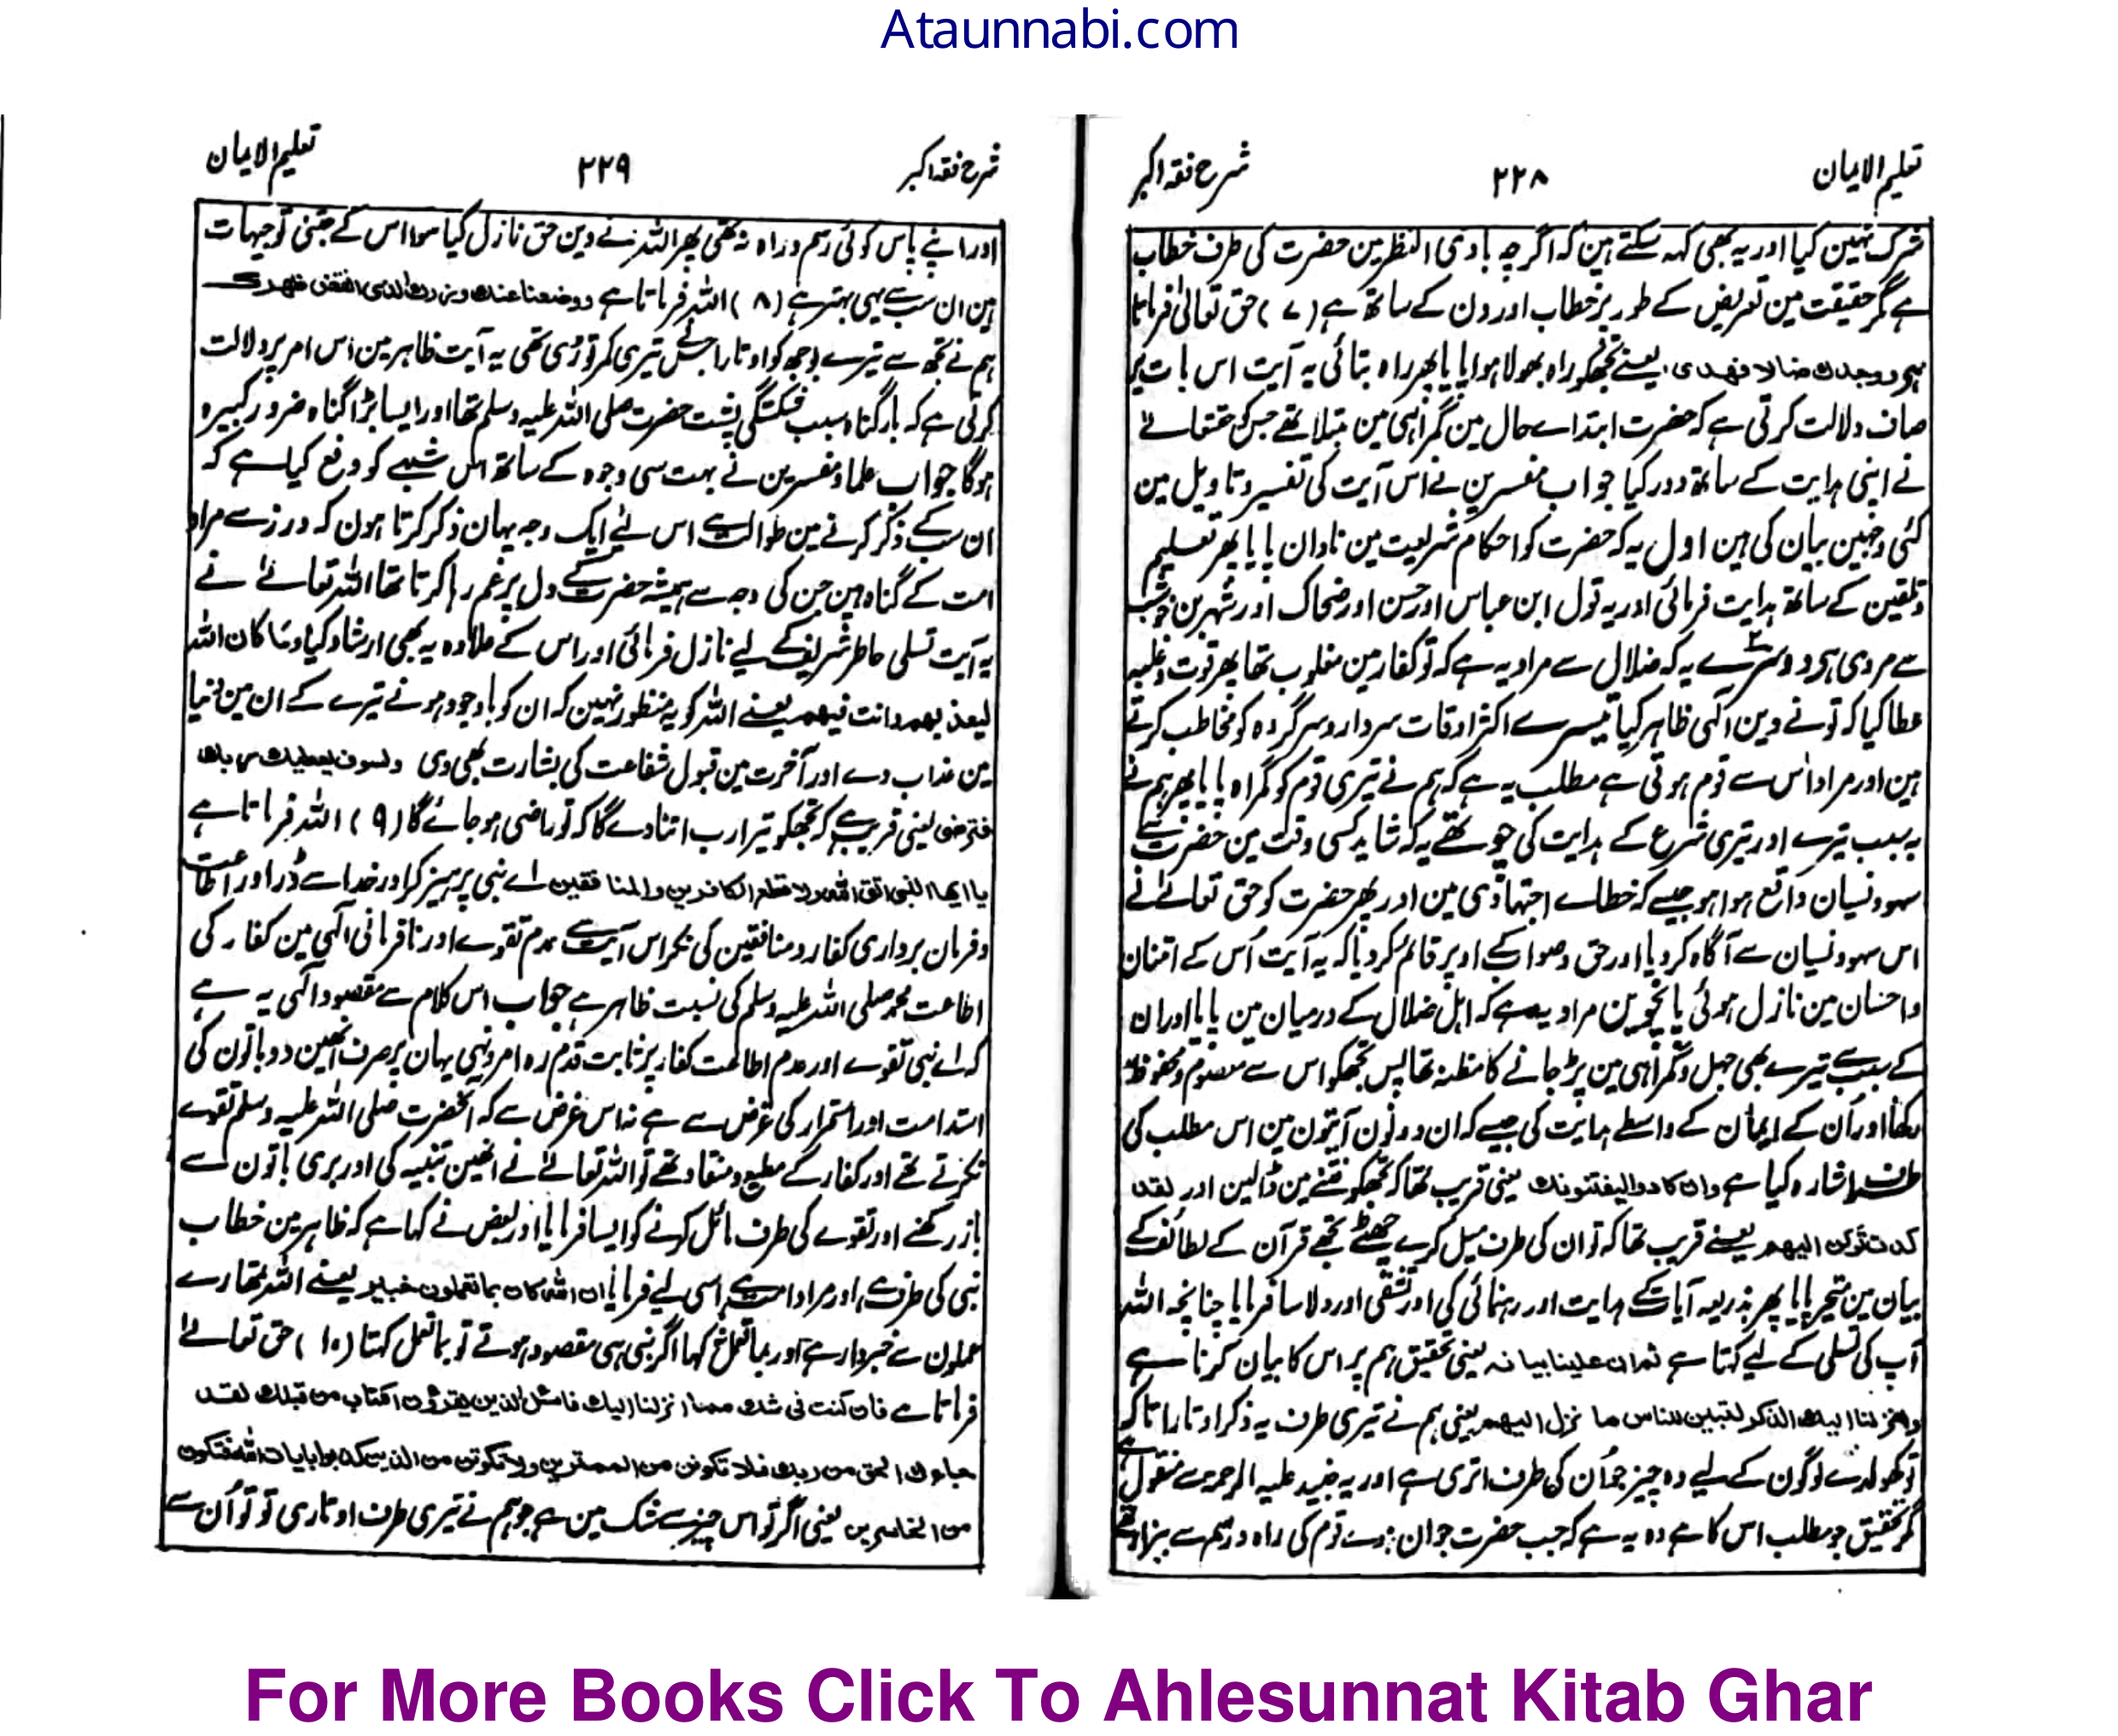 Ataunnabi.com
تعلیم الایمان ۲۲۸ شرح فقہ اکبر
شرک نہین کیا اور یہ بھی کہہ سکتے ہین کہ اگرچہ بادی النظر مین حضرت کی طرف خطاب
ہے مگر حقیقت مین تعریض کے طور پر خطاب اورون کے ساتھ ہے (۷) حق تعالیٰ فرماتا
ہے ووجدک ضالا فهدی، یعنے تجھکو راہ بھولا ہوا پایا پھر راہ بتائی یہ آیت اس بات پر
صاف دلالت کرتی ہے کہ حضرت ابتداے حال مین گمراہی مین مبتلا تھے جس کو حقتعالے
نے اپنی ہدایت کے ساتھ دور کیا جواب مفسرین نے اس آیت کی تفسیر و تاویل مین
کئی وجہین بیان کی ہین اول یہ کہ حضرت کو احکام شریعت مین نادان پایا پھر تعلیم
و تلقین کے ساتھ ہدایت فرمائی اور یہ قول ابن عباس اور حسن اور ضحاک اور شہر بن حوشب
سے مروی ہی دوسرے یہ کہ ضلال سے مراد یہ ہے کہ تو کفار مین مغلوب تھا پھر قوت و غلبہ
عطا کیا کہ تو نے دین الٰہی ظاہر کیا تیسرے اکثر اوقات سردار و سرگردہ کو مخاطب کرتے
ہین اور مراد اس سے قوم ہوتی ہے مطلب یہ ہے کہ ہم نے تیری قوم کو گمراہ پایا پھر ہم نے
بہ سبب تیرے اور تیری شرع کے ہدایت کی چوتھے یہ کہ شاید کسی وقت مین حضرت سے
سہو و نسیان واقع ہوا ہو جیسے کہ خطاے اجتہادی مین اور پھر حضرت کو حق تعالے نے
اس سہو و نسیان سے آگاہ کر دیا اور حق و صواب کے اوپر قائم کر دیا کہ یہ آیت اُس کے امتنان
و احسان مین نازل ہوئی پانچوین مراد یہ ہے کہ اہل ضلال کے درمیان مین پایا اور ان
کے سبب سے تیرے بھی جہل و گمراہی مین پڑ جانے کا مظنہ تھا پس تجھکو اس سے معصوم و محفوظ
رکھا اور اُن کے ایمان کے واسطے ہدایت کی جیسے کہ ان دونون آیتون مین اس مطلب کی
طرف اشارہ کیا ہے وان کادوا لیفتنونک یعنی قریب تھا کہ تجھکو فتنے مین ڈالین اور لقد
کدت ترکن الیهم یعنے قریب تھا کہ تو ان کی طرف میل کرے چھٹے تجھے قرآن کے لطائف کے
بیان مین متحیر پایا پھر بذریعہ آیات کے ہدایت اور رہنمائی کی اور تشفی اور دلاسا فرمایا چنانچہ اللہ
آپ کی تسلی کے لیے کہتا ہے ثم ان علینا بیانه یعنی تحقیق ہم پر اس کا بیان کرنا ہے
وانزلنا الیک الذکر لتبین للناس ما نزل الیهم یعنی ہم نے تیری طرف یہ ذکر اوتارا تاکہ
تو کھولدے لوگون کے لیے وہ چیز جو اُن کی طرف اتری ہے اور یہ جنید علیہ الرحمہ سے منقول ہے
مگر تحقیق جو مطلب اس کا ہے وہ یہ ہے کہ جب حضرت جوان ہوے قوم کی راہ و رسم سے بیزار تھے
شرح فقہ اکبر ۲۲۹ تعلیم الایمان
اور اپنے پاس کوئی رسم و راہ نہ تھی پھر اللہ نے دین حق نازل کیا سوا اس کے جتنی توجیہات
ہین ان سب سے یہی بہتر ہے (۸) اللہ فرماتا ہے ووضعنا عنک وزرک الذی انقض ظهرک
ہم نے تجھ سے تیرے بوجھ کو اوتارا جس نے تیری کمر توڑی تھی یہ آیت ظاہر مین اس امر پر دلالت
کرتی ہے کہ بار گناہ سبب شکستگی پشت حضرت صلی اللہ علیہ وسلم تھا اور ایسا بڑا گناہ ضرور کبیرہ
ہوگا جواب علما و مفسرین نے بہت سی وجوہ کے ساتھ اس شبہے کو دفع کیا ہے کہ
ان سب کے ذکر کرنے مین طوالت ہے اس لئے ایک وجہ یہان ذکر کرتا ہون کہ وزر سے مراد
امت کے گناہ ہین جن کی وجہ سے ہمیشہ حضرت کے دل پر غم رہا کرتا تھا اللہ تعالے نے
یہ آیت تسلی خاطر شریف کے لیے نازل فرمائی اور اس کے علاوہ یہ بھی ارشاد کیا وما کان اللہ
لیعذبهم وانت فیهم یعنے اللہ کو یہ منظور نہین کہ ان کو باوجود ہونے تیرے کے ان مین دنیا
مین عذاب دے اور آخرت مین قبول شفاعت کی بشارت بھی دی ولسوف یعطیک ربک
فترضی یعنی قریب ہے کہ تجھکو تیرا رب اتنا دے گا کہ تو راضی ہو جائے گا (۹) اللہ فرماتا ہے
یا ایها النبی اتق اللہ ولا تطع الکافرین والمنافقین اے نبی پرہیز کر اور خدا سے ڈر اور اطاعت
و فرمان برداری کفار و منافقین کی نکر اس آیت سے عدم تقوے اور نافرمانی الٰہی مین کفار کی
اطاعت محمد صلی اللہ علیہ وسلم کی نسبت ظاہر ہے جواب اس کلام سے مقصود الٰہی یہ ہے
کہ اے نبی تقوے اور عدم اطاعت کفار پر ثابت قدم رہ امر و نہی یہان پر صرف انھین دو باتون کی
استدامت اور استمرار کی غرض سے ہے نہ اس غرض سے کہ آنحضرت صلی اللہ علیہ وسلم تقوے
نکرتے تھے اور کفار کے مطیع و منقاد تھے تو اللہ تعالے نے انھین تنبیہ کی اور بری باتون سے
باز رکھنے اور تقوے کی طرف مائل کرنے کو ایسا فرمایا اور بعض نے کہا ہے کہ ظاہر مین خطاب
نبی کی طرف ہے اور مراد امت ہے اسی لیے فرمایا ان اللہ کان بما تعملون خبیر یعنے اللہ تمھارے
عملون سے خبردار ہے اور بما تعملون کہا اگر نبی ہی مقصود ہوتے تو بما تعمل کہتا (۱۰) حق تعالے
فرماتا ہے فان کنت فی شک مما انزلنا الیک فاسئل الذین یقرؤن الکتاب من قبلک لقد
جاءک الحق من ربک فلا تکونن من الممترین ولا تکونن من الذین کذبوا بایات اللہ فتکون
من الخاسرین یعنی اگر تو اس چیز سے شک مین ہے جو ہم نے تیری طرف اوتاری تو تو اُن سے
For More Books Click To Ahlesunnat Kitab Ghar